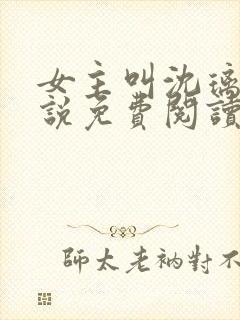 女主叫沈璃
說免費閱讀
師太老衲對不